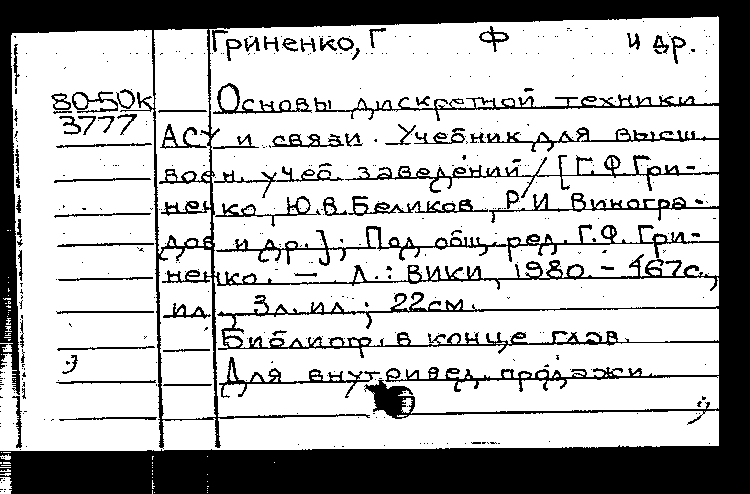 Гриненко, Г Ф и др.
80-50к
3777
Основы дискретной техники
АСУ и связи. Учебник для высш.
воен. учеб. заведений / [Г.Ф. Гри-
ненко, Ю.В. Беликов, Р.И. Виногра-
дов и др.]; Под общ. ред. Г.Ф. Гри-
ненко. — Л.: ВИКИ, 1980. - 467с.,
ил., 3л. ил.; 22см.
Библиогр. в конце глав.
Для внутривед. продажи.